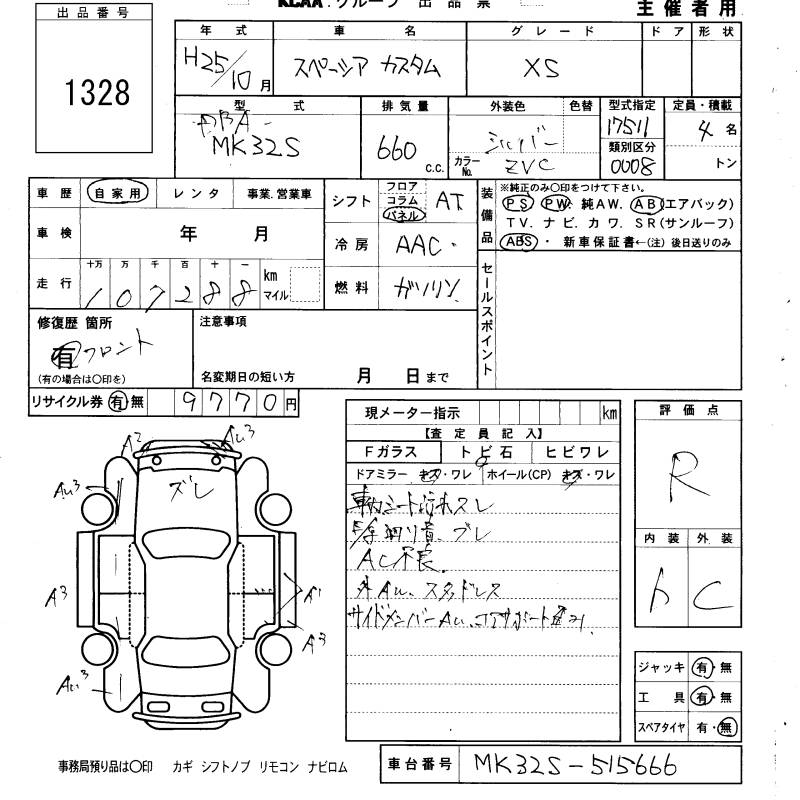 KCAA グループ 出品票
主催者用
出品番号
1328
年式 車名 グレード ドア 形状
H25/10月 スペーシア カスタム XS
型式 排気量 外装色 色替 型式指定 定員・積載
DBA-
MK32S 660 c.c. シルバー カラーNo. ZVC 17511 4名
類別区分
0008 トン
車歴 自家用 レンタ 事業.営業車
シフト フロア コラム パネル AT
車検 年 月
冷房 AAC
走行 十万 万 千 百 十 一
107288 km マイル
燃料 ガソリン
装備品
※純正のみ○印をつけて下さい。
PS PW. 純AW. AB(エアバック)
TV. ナビ. カワ. SR(サンルーフ)
ABS ・ 新車保証書←(注) 後日送りのみ
セールスポイント
修復歴 箇所
有 フロント
(有の場合は○印を)
注意事項
名変期日の短い方 月 日まで
リサイクル券 有 無 9770円
現メーター指示 km
【査定員記入】
Fガラス トビ石 ヒビワレ
ドアミラー キズ・ワレ ホイール(CP) キズ・ワレ
車内シート汚れスレ
ブレ
AC不良
外AU. スタッドレス
サイドメンバーAU.
評価点
R
内装 外装
C
A2 AU3
ズレ
AU3
A3 A1
A3
AU3
ジャッキ 有・無
工具 有・無
スペアタイヤ 有・無
事務局預り品は○印 カギ シフトノブ リモコン ナビロム
車台番号 MK32S-515666